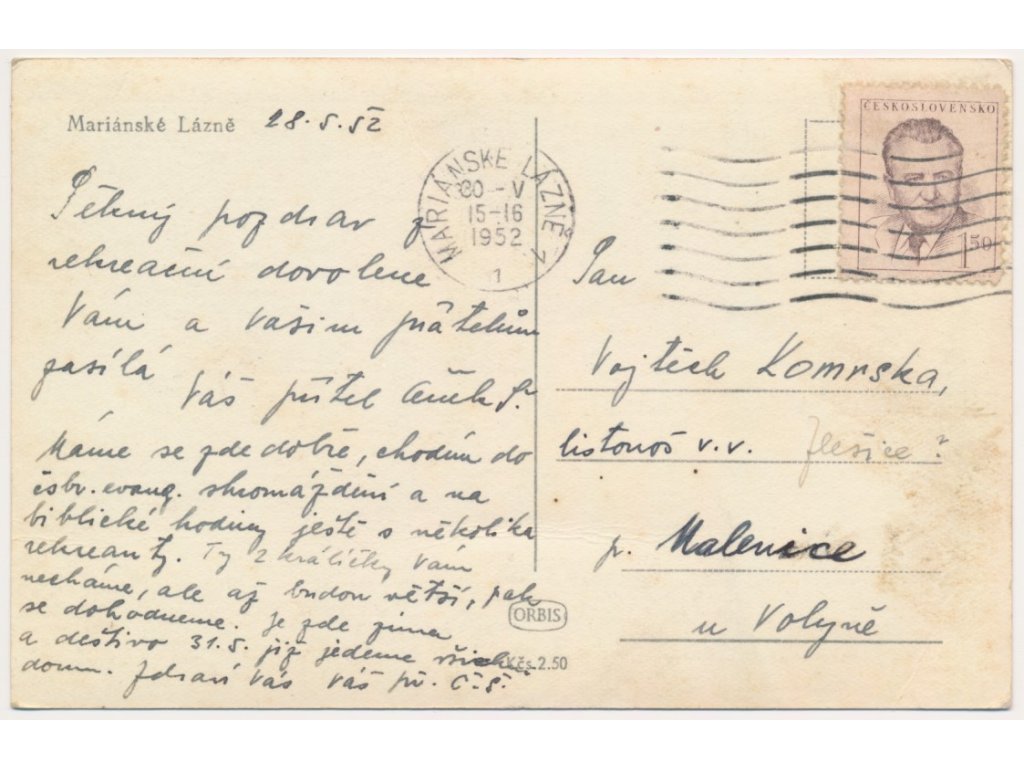 Mariánské Lázně 28.5.52
Pěkný pozdrav z
rekreační dovolené
Vám a Vašim přátelům
zasílá
Váš přítel Č.
Máme se zde dobře, chodím do
čsbr. evang. shromáždění a na
biblické hodiny ještě s několika
rekreanty. Ty 2 králíčky Vám
necháme, ale až budou větší, pak
se dohodneme. Je zde zima
a deštivo 31.5. již jedeme všichni
domu. Zdraví Vás Váš př. Č.Š.
MARIÁNSKÉ LÁZNĚ 1
30 -V
15-16
1952
1
ČESKOSLOVENSKO
1.50
Pan
Vojtěch Komrska,
listonoš v.v. Zlešice?
p. Malenice
u Volyně
ORBIS
Kčs 2.50